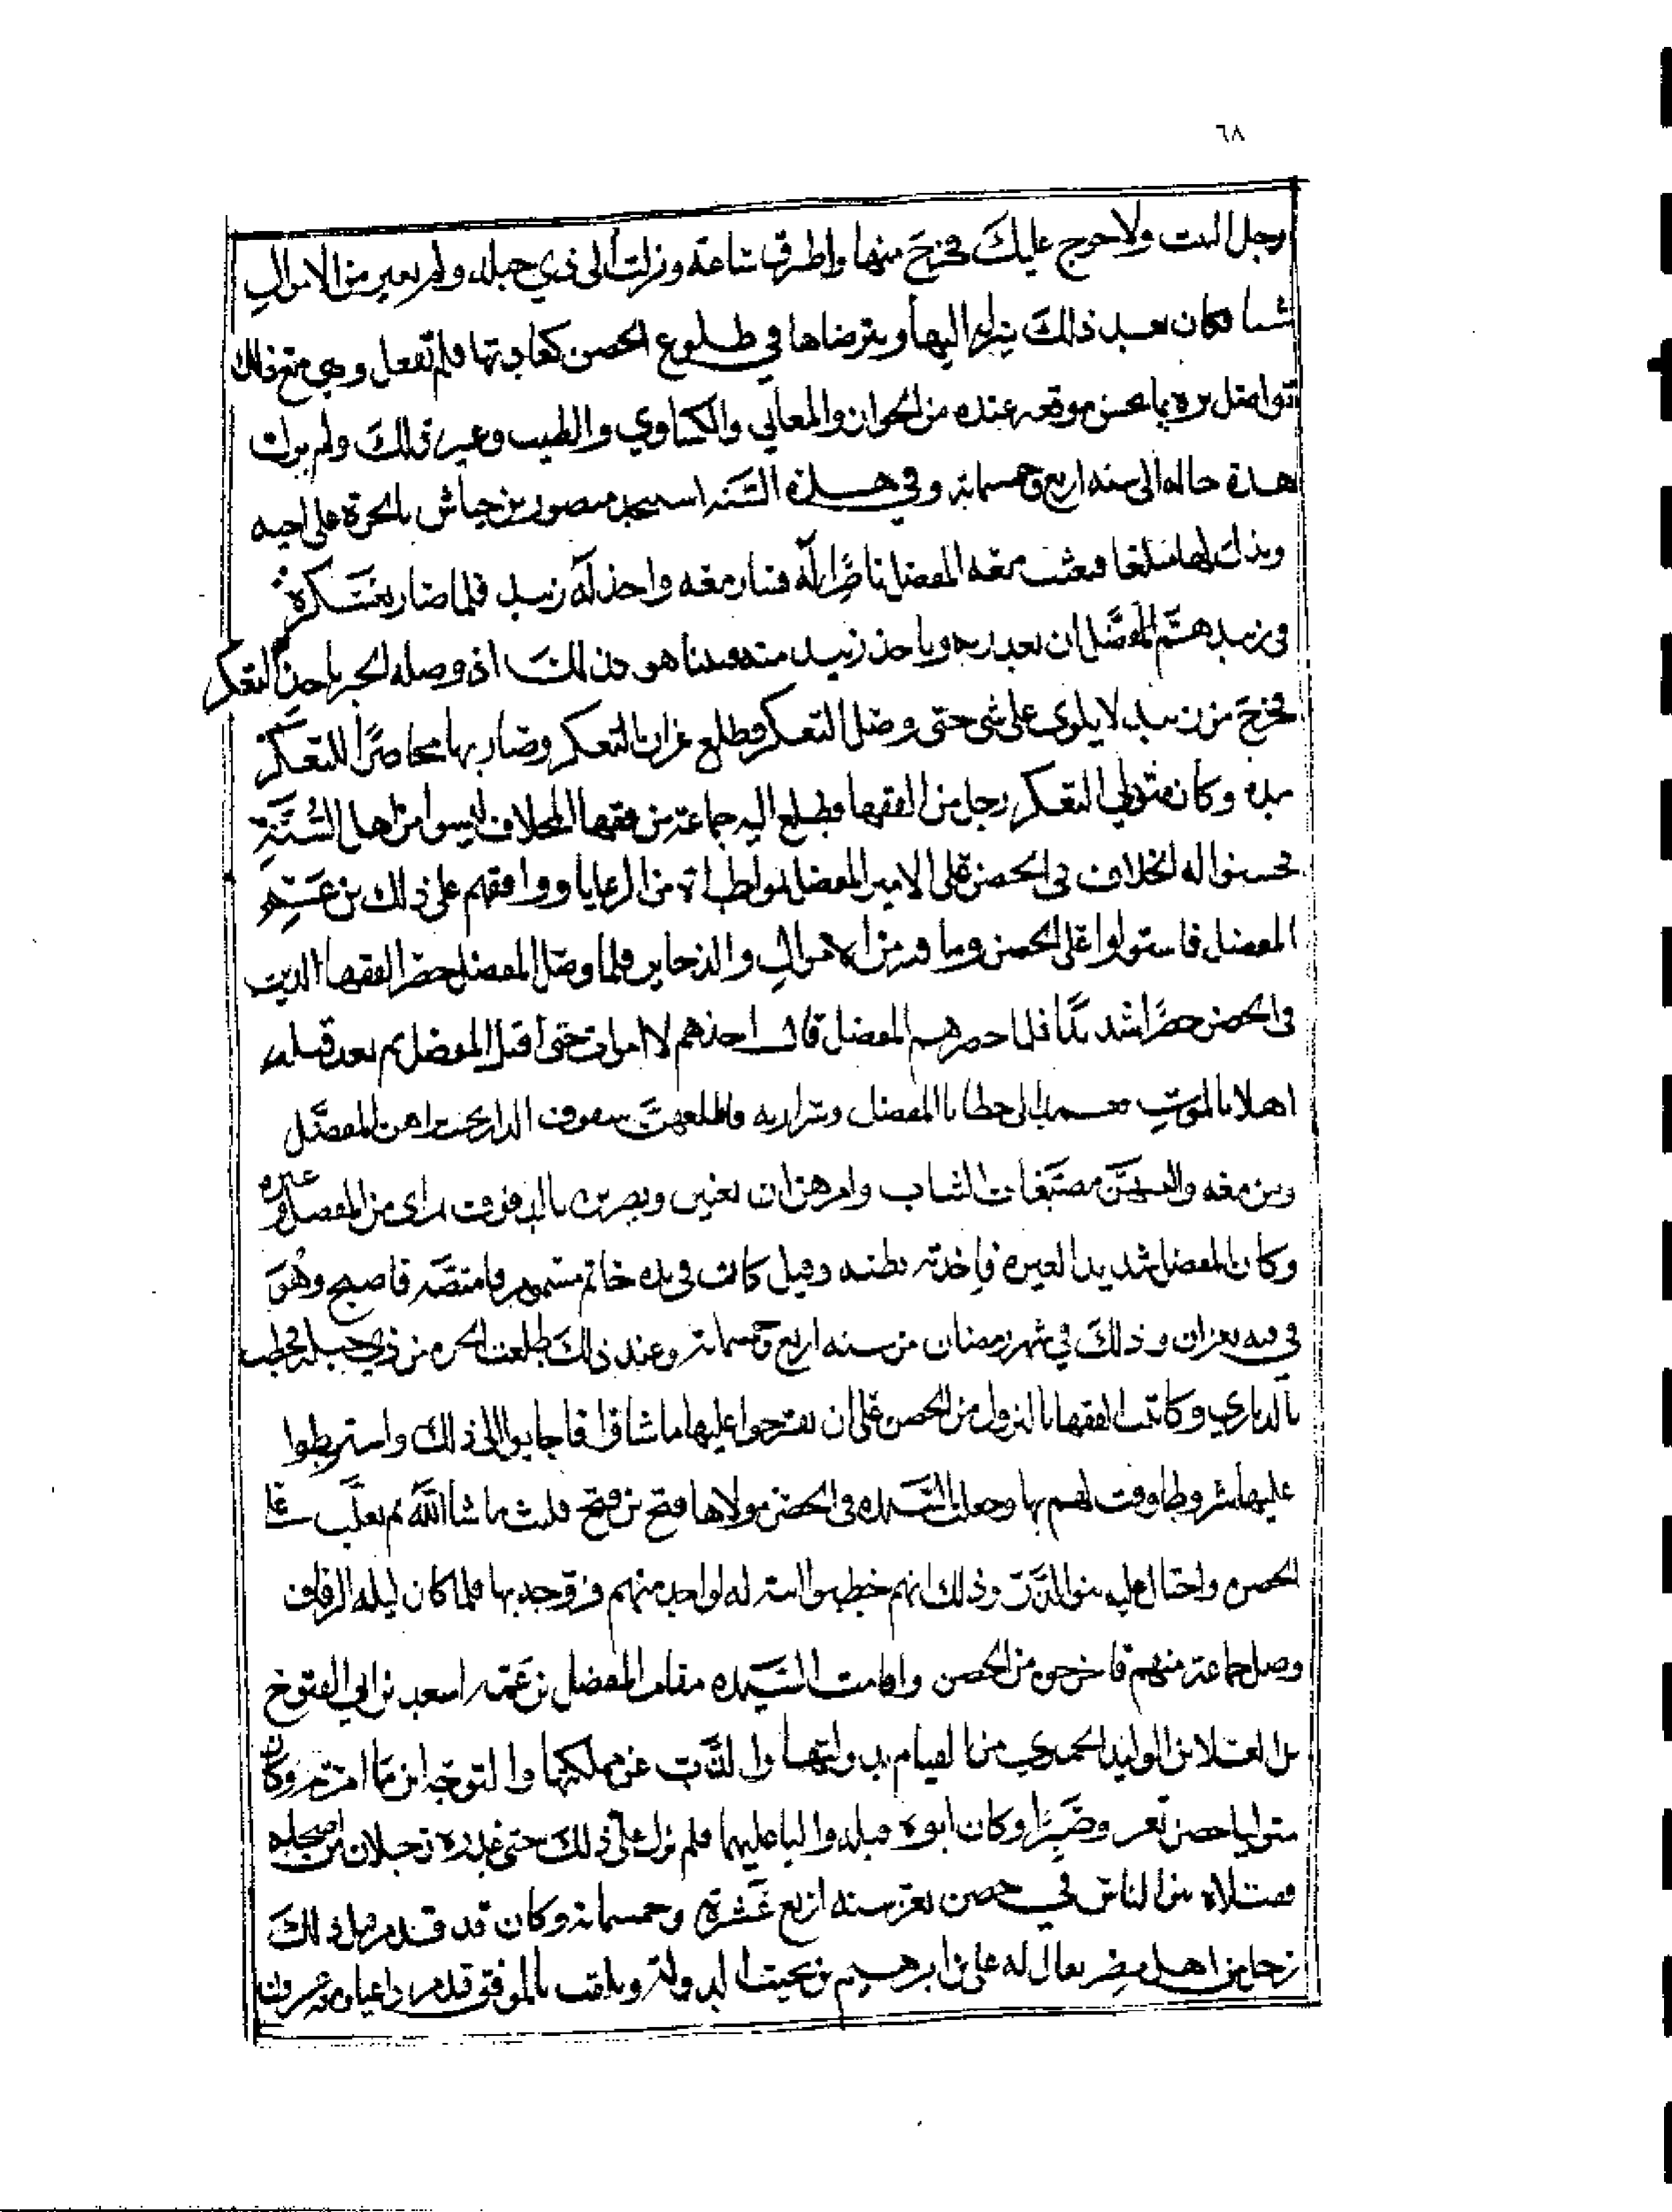 ٦٨
رجل البيت ولا حرج عليك فخرج منها واطرق ساعة ونزلت الى ذي جبله ولم يعير من الاموال
شيا فكان بعد ذلك ينزل اليها ويترضاها في طلوع الحصن كعادتها فلم تفعل وهي مع ذلك
تواصل بره بما يحسن موقعه عنده من الجوار والمعاني والكساوي والطيب وغير ذلك ولم
هذه حاله الى سنه اربع وخمسمايه وفي هذه السنه استنجد منصور بن جياش بالحرة على اخيه
وبذل لها مبلغا فبعث معه المفضل ناصرا له فسار معه واخذ له زبيد فلما صار بعسكره
في زبيد هم المفضل ان يغدر به وياخذ زبيد منه فبينا هو في ذلك اذ وصله الخبر باخذ التعكر
فخرج من زبيد لا يلوى على شي حتى وصل التعكر فطلع عزان التعكر وصار بها محاصرا للتعكر
مده وكان متولي التعكر رجل من الفقها فطلع اليه جماعة من فقها المخلاف ليسوا من اهل السنة
فحسنوا له الخلاف في الحصن على الامير المفضل بمواطاة من الرعايا ووافقهم على ذلك بن عم
المفضل فاستولوا على الحصن وما فيه من الاموال والذخاير فلما وصل المفضل حصر الفقها الذين
في الحصن حصرا شديدا فلما حصرهم المفضل قال احدهم لا اموت حتى اقتل المفضل ثم بعد قتله
اهلا بالموت فعمد الى حظايا المفضل وسراريه واطلعهن سقوف الدار بحيث يراهن المفضل
ومن معه والبسهن مصبغات الثياب وامرهن ان يغنين ويضربن بالدفوف بمراى من المفضل وغيره
وكان المفضل شديد الغيرة فاخذته بطنه وقيل كان في يده خاتم مسموم فامتصه فاصبح وهو
في فيه بعزان وذلك في شهر رمضان من سنه اربع وخمسمايه وعند ذلك طلعت الحره من ذي جبله فخطت
بالدباري وكاتبت الفقها بالنزول من الحصن على ان يقترحوا عليها ما شاوا فاجابوا الى ذلك واشترطوا
عليها شروطا وفت لهم بها وجعلت السيده في الحصن مولاها فتح بن فتح فلبث ما شا الله ثم تغلب على
الحصن واحتال عليه بنو الزر وذلك انهم خطبوا ابنته له لواحد منهم فزوجه بها فلما كان ليله الزفاف
وصل جماعة منهم فاخرجوه من الحصن واقامت السيده مقام المفضل بن عمه اسعد بن ابي الفتوح
بن العلا بن الوليد الحميري من القيام بدولتها والذب عن مملكتها والتوجه اين ما امرته وكان
متوليا حصن تعز وصبر وكان ابوه قبله واليا عليهما فلم يزل على ذلك حتى غدره رجلان من اصحابه
فقتلاه بين الناس في حصن تعز سنه اربع عشرة وخمسمايه وكان قد قدم قبل ذلك
رجل من اهل مصر يقال له علي بن ابرهيم بن نجيب الدوله ويلقب بالموفق قدم داعيا